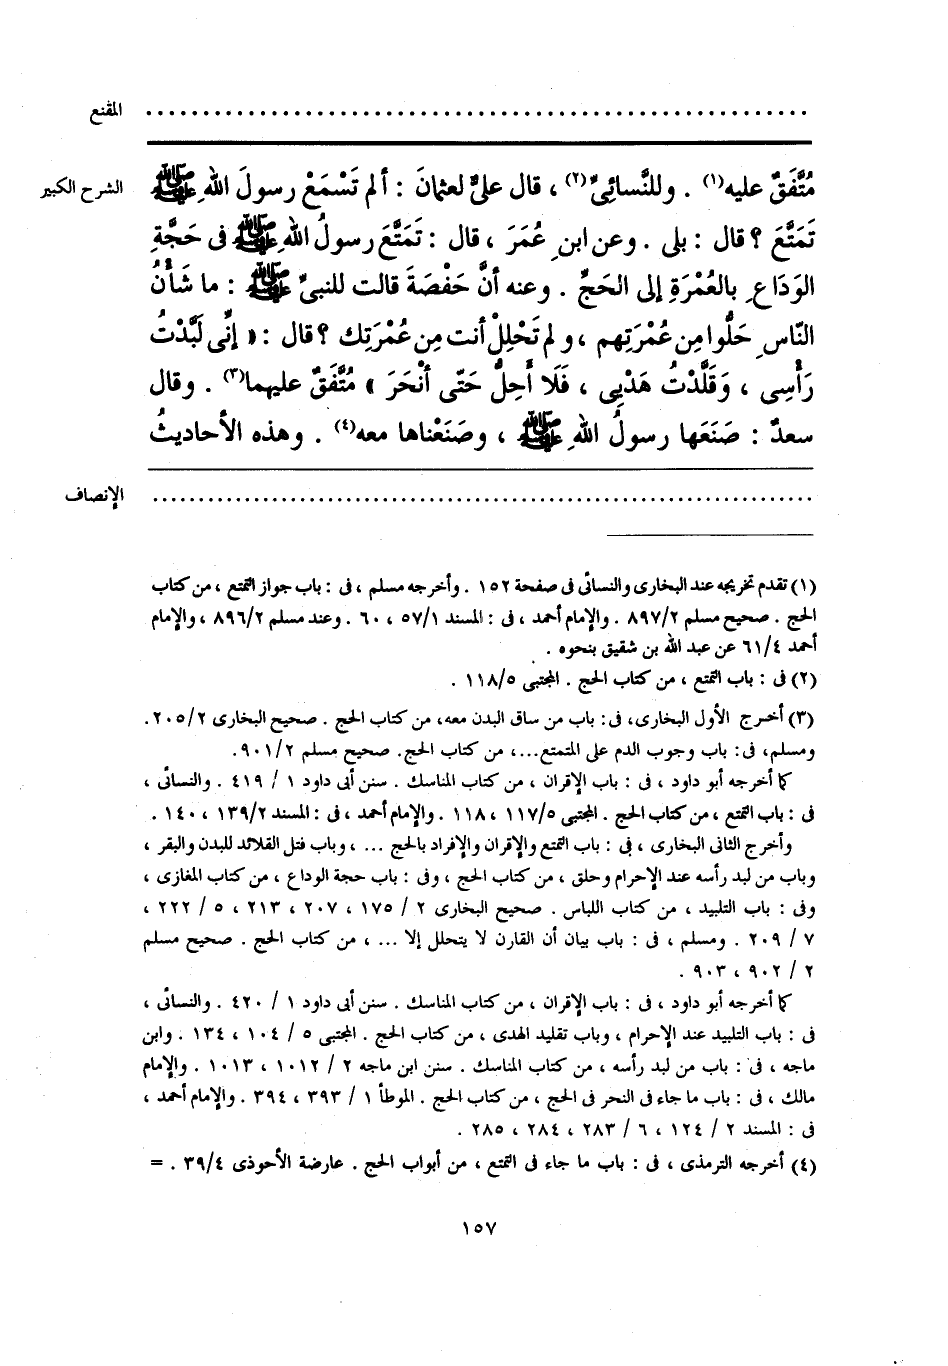 المقنع ........................................................
الشرح الكبير
مُتَّفَقٌ عليه(١) . وللنَّسائِىِّ(٢) ، قال علىٌّ لعثمانَ : ألم تَسْمَعْ رسولَ اللهِ ﷺ
تَمَتَّعَ ؟ قال : بلى . وعن ابنِ عُمَرَ ، قال : تَمَتَّعَ رسولُ اللهِ ﷺ فى حَجَّةِ
الوَدَاعِ بالعُمْرَةِ إلى الحَجِّ . وعنه أنَّ حَفْصَةَ قالت للنبىِّ ﷺ : ما شَأْنُ
النّاسِ حَلُّوا مِن عُمْرَتِهم ، ولم تَحْلِلْ أنت مِن عُمْرَتِك ؟ قال : « إنِّى لَبَّدْتُ
رَأْسِى ، وَقَلَّدْتُ هَدْيِى ، فَلَا أَحِلُّ حَتَّى أنْحَرَ » مُتَّفَقٌ عليهما(٣) . وقال
سعدٌ : صَنَعَها رسولُ اللهِ ﷺ ، وصَنَعْناها معه(٤) . وهذه الأحاديثُ
الإنصاف ........................................................
(١) تقدم تخريجه عند البخارى والنسائى فى صفحة ١٥٢ . وأخرجه مسلم ، فى : باب جواز التمتع ، من كتاب
الحج . صحيح مسلم ٨٩٧/٢ . والإمام أحمد ، فى : المسند ٥٧/١ ، ٦٠ . وعند مسلم ٨٩٦/٢ ، والإمام
أحمد ٦١/٤ عن عبد الله بن شقيق بنحوه .
(٢) فى : باب التمتع ، من كتاب الحج . المجتبى ١١٨/٥ .
(٣) أخرج الأول البخارى، فى: باب من ساق البدن معه، من كتاب الحج . صحيح البخارى ٢٠٥/٢.
ومسلم، فى: باب وجوب الدم على المتمتع...، من كتاب الحج. صحيح مسلم ٩٠١/٢.
كما أخرجه أبو داود ، فى : باب الإقران ، من كتاب المناسك . سنن أبى داود ١ / ٤١٩ . والنسائى ،
فى : باب التمتع ، من كتاب الحج . المجتبى ١١٧/٥ ، ١١٨ . والإمام أحمد ، فى : المسند ١٣٩/٢ ، ١٤٠ .
وأخرج الثانى البخارى ، فى : باب التمتع والإقران والإفراد بالحج ... ، وباب فتل القلائد للبدن والبقر ،
وباب من لبد رأسه عند الإحرام وحلق ، من كتاب الحج ، وفى : باب حجة الوداع ، من كتاب المغازى ،
وفى : باب التلبيد ، من كتاب اللباس . صحيح البخارى ٢ / ١٧٥ ، ٢٠٧ ، ٢١٣ ، ٥ / ٢٢٢ ،
٧ / ٢٠٩ . ومسلم ، فى : باب بيان أن القارن لا يتحلل إلا ... ، من كتاب الحج . صحيح مسلم
٢ / ٩٠٢ ، ٩٠٣ .
كما أخرجه أبو داود ، فى : باب الإقران ، من كتاب المناسك . سنن أبى داود ١ / ٤٢٠ . والنسائى ،
فى : باب التلبيد عند الإحرام ، وباب تقليد الهدى ، من كتاب الحج . المجتبى ٥ / ١٠٤ ، ١٣٤ . وابن
ماجه ، فى : باب من لبد رأسه ، من كتاب المناسك . سنن ابن ماجه ٢ / ١٠١٢ ، ١٠١٣ . والإمام
مالك ، فى : باب ما جاء فى النحر فى الحج ، من كتاب الحج . الموطأ ١ / ٣٩٣ ، ٣٩٤ . والإمام أحمد ،
فى : المسند ٢ / ١٢٤ ، ٦ / ٢٨٣ ، ٢٨٤ ، ٢٨٥ .
(٤) أخرجه الترمذى ، فى : باب ما جاء فى التمتع ، من أبواب الحج . عارضة الأحوذى ٣٩/٤ . =
١٥٧